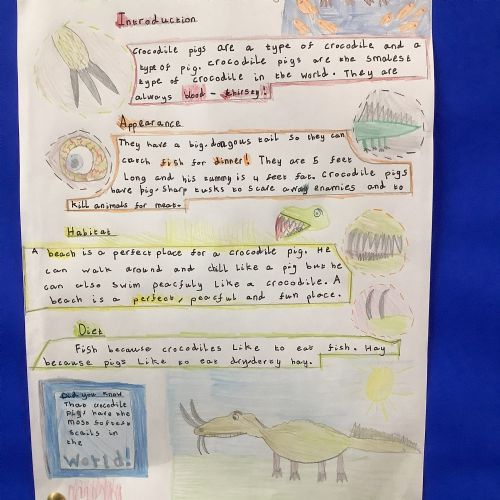 Introduction
Crocodile pigs are a type of crocodile and a
type of pig. Crocodile pigs are the smalest
type of crocodile in the world. They are
always blood - thirsey!
Appearance
They have a big, dangous tail so they can
catch fish for dinner! They are 5 feet
long and his tummy is 4 feet fat. Crocodile pigs
have big, sharp tusks to scare away enamies and to
kill animals for meat.
Habitat
A beach is a perfect place for a crocodile pig. He
can walk around and chill like a pig but he
can also swim peacfuly like a crocodile. A
beach is a perfect, peacful and fun place.
Diet
Fish because crocodiles like to eat fish. Hay
because pigs like to eat dry hay.
Did you know
That crocodile
pigs have the
most softest
scails in
the
World!